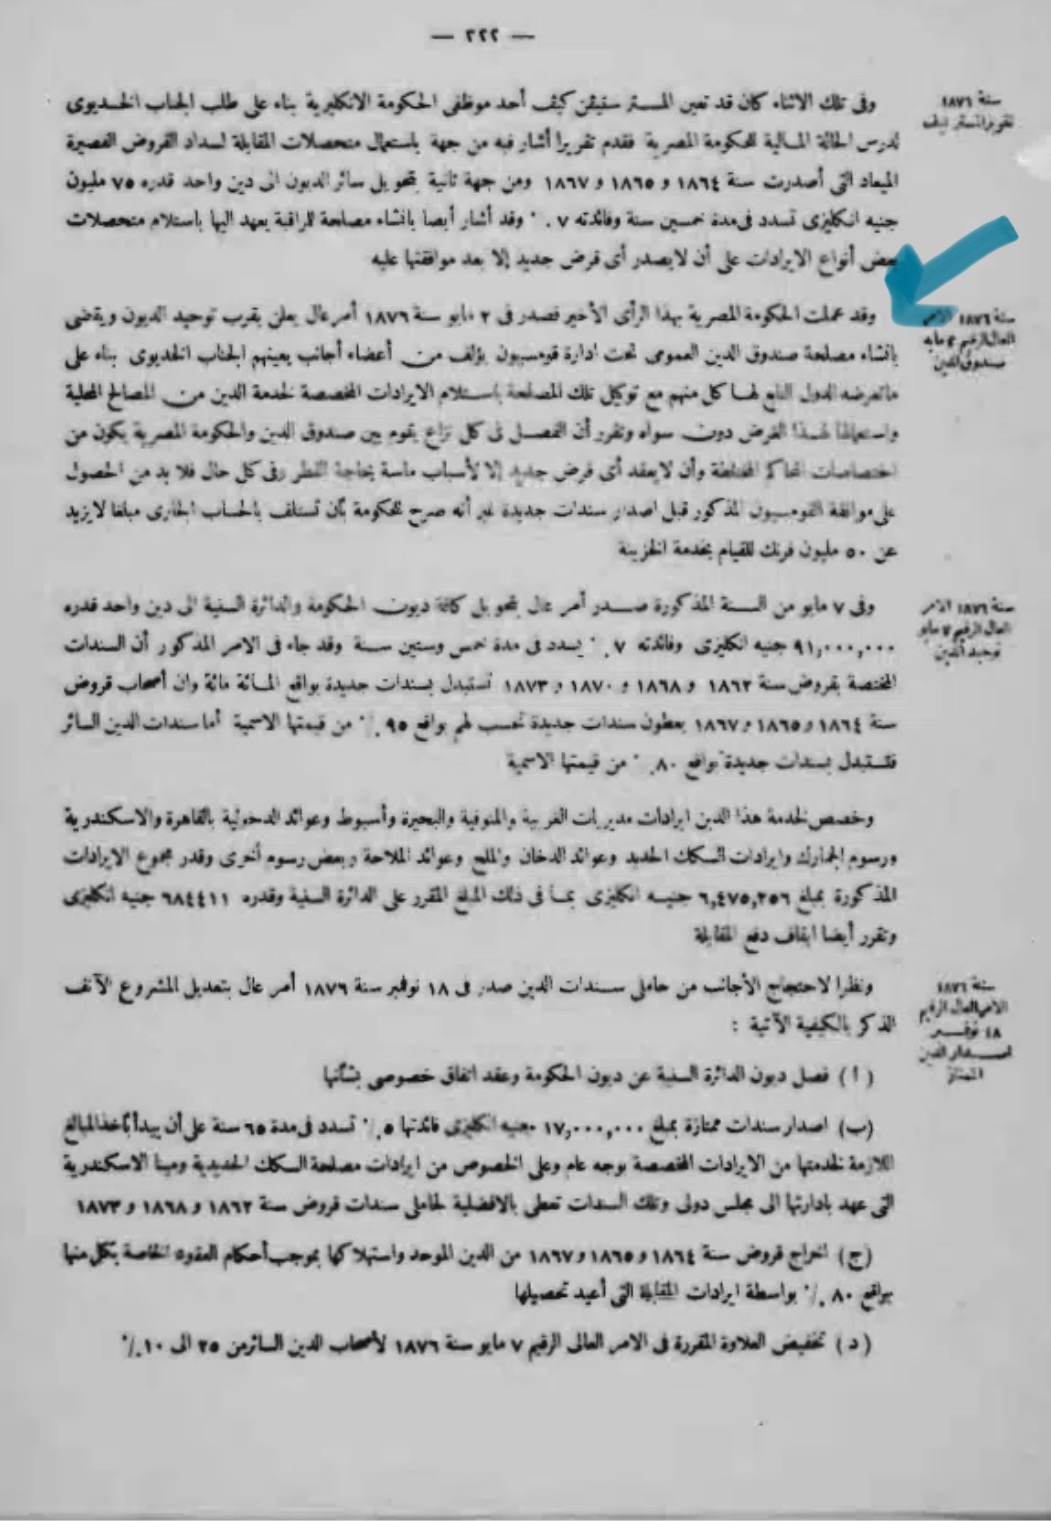 — ٢٢٢ —
سنة ١٨٧٦
تقرير المستر كيف
وفى تلك الاثناء كان قد تعين المستر ستيفن كيف أحد موظفى الحكومة الانكليزية بناء على طلب الجناب الخديوى
لدرس الحالة المالية للحكومة المصرية فقدم تقريرا أشار فيه من جهة باستعمال متحصلات المقابلة لسداد القروض القصيرة
الميعاد التى أصدرت سنة ١٨٦٤ و ١٨٦٥ و ١٨٦٧ ومن جهة ثانية بتحويل سائر الديون الى دين واحد قدره ٧٥ مليون
جنيه انكليزى تسدد فى مدة خمسين سنة وفائدته ٧ ٪ وقد أشار أيضا بانشاء مصلحة للمراقبة يعهد اليها باستلام متحصلات
بعض أنواع الايرادات على أن لا يصدر أى قرض جديد إلا بعد موافقتها عليه
سنة ١٨٧٦ الامر
العال الرقيم ٢ مايه
صندوق الدين
وقد عملت الحكومة المصرية بهذا الرأى الأخير فصدر فى ٢ مايو سنة ١٨٧٦ أمر عال يعلن بقرب توحيد الديون ويقضى
بانشاء مصلحة صندوق الدين العمومى تحت ادارة قومسيون يؤلف من أعضاء أجانب يعينهم الجناب الخديوى بناء على
ما تعرضه الدول التابع لها كل منهم مع توكيل تلك المصلحة باستلام الايرادات المخصصة لخدمة الدين من المصالح المحلية
واستعمالها لهذا الغرض دون سواه وتقرر أن الفصل فى كل نزاع يقوم بين صندوق الدين والحكومة المصرية يكون من
اختصاصات المحاكم المختلطة وأن لا يعقد أى قرض جديد إلا لأسباب ماسة بحاجة القطر وفى كل حال فلا بد من الحصول
على موافقة القومسيون المذكور قبل اصدار سندات جديدة غير أنه صرح للحكومة بأن تستلف بالحساب الجارى مبلغا لا يزيد
عن ٥٠ مليون فرنك للقيام بخدمة الخزينة
سنة ١٨٧٦ الامر
العال الرقيم ٧ مايو
توحيد الدين
وفى ٧ مايو من السنة المذكورة صدر أمر عال بتحويل كافة ديون الحكومة والدائرة السنية الى دين واحد قدره
٩١,٠٠٠,٠٠٠ جنيه انكليزى وفائدته ٧ ٪ يسدد فى مدة خمس وستين سنة وقد جاء فى الامر المذكور أن السندات
المختصة بقروض سنة ١٨٦٢ و ١٨٦٨ و ١٨٧٠ و ١٨٧٣ تستبدل بسندات جديدة بواقع المائة مائة وان أصحاب قروض
سنة ١٨٦٤ و ١٨٦٥ و ١٨٦٧ يعطون سندات جديدة تحسب لهم بواقع ٩٥ ٪ من قيمتها الاسمية أما سندات الدين السائر
فتستبدل بسندات جديدة بواقع ٨٠ ٪ من قيمتها الاسمية
وخصص لخدمة هذا الدين ايرادات مديريات الغربية والمنوفية والبحيرة وأسيوط وعوائد الدخولية بالقاهرة والاسكندرية
ورسوم الجمارك وايرادات السكك الحديد وعوائد الدخان والملح وعوائد الملاحة وبعض رسوم أخرى وقدر مجموع الايرادات
المذكورة بمبلغ ٦,٤٧٥,٢٥٦ جنيه انكليزى بما فى ذلك المبلغ المقرر على الدائرة السنية وقدره ٦٨٤٤١١ جنيه انكليزى
وتقرر أيضا ايقاف دفع المقابلة
سنة ١٨٧٦
الامر العال الرقيم
١٨ نوفمبر
اصدار الدين
الممتاز
ونظرا لاحتجاج الأجانب من حاملى سندات الدين صدر فى ١٨ نوفمبر سنة ١٨٧٦ أمر عال بتعديل المشروع الآنف
الذكر بالكيفية الآتية :
( أ ) فصل ديون الدائرة السنية عن ديون الحكومة وعقد اتفاق خصوصى بشأنها
(ب) اصدار سندات ممتازة بمبلغ ١٧,٠٠٠,٠٠٠ جنيه انكليزى فائدتها ٥ ٪ تسدد فى مدة ٦٥ سنة على أن يبدأ بأخذ المبالغ
اللازمة لخدمتها من الايرادات المخصصة بوجه عام وعلى الخصوص من ايرادات مصلحة السكك الحديدية ومينا الاسكندرية
التى عهد بادارتها الى مجلس دولى وتلك السندات تعطى بالافضلية لحاملى سندات قروض سنة ١٨٦٢ و ١٨٦٨ و ١٨٧٣
(ج) اخراج قروض سنة ١٨٦٤ و ١٨٦٥ و ١٨٦٧ من الدين الموحد واستهلاكها بموجب أحكام العقود الخاصة بكل منها
بواقع ٨٠ ٪ بواسطة ايرادات المقابلة التى أعيد تحصيلها
( د ) تخفيض العلاوة المقررة فى الامر العالى الرقيم ٧ مايو سنة ١٨٧٦ لأصحاب الدين السائر من ٢٥ الى ١٠ ٪